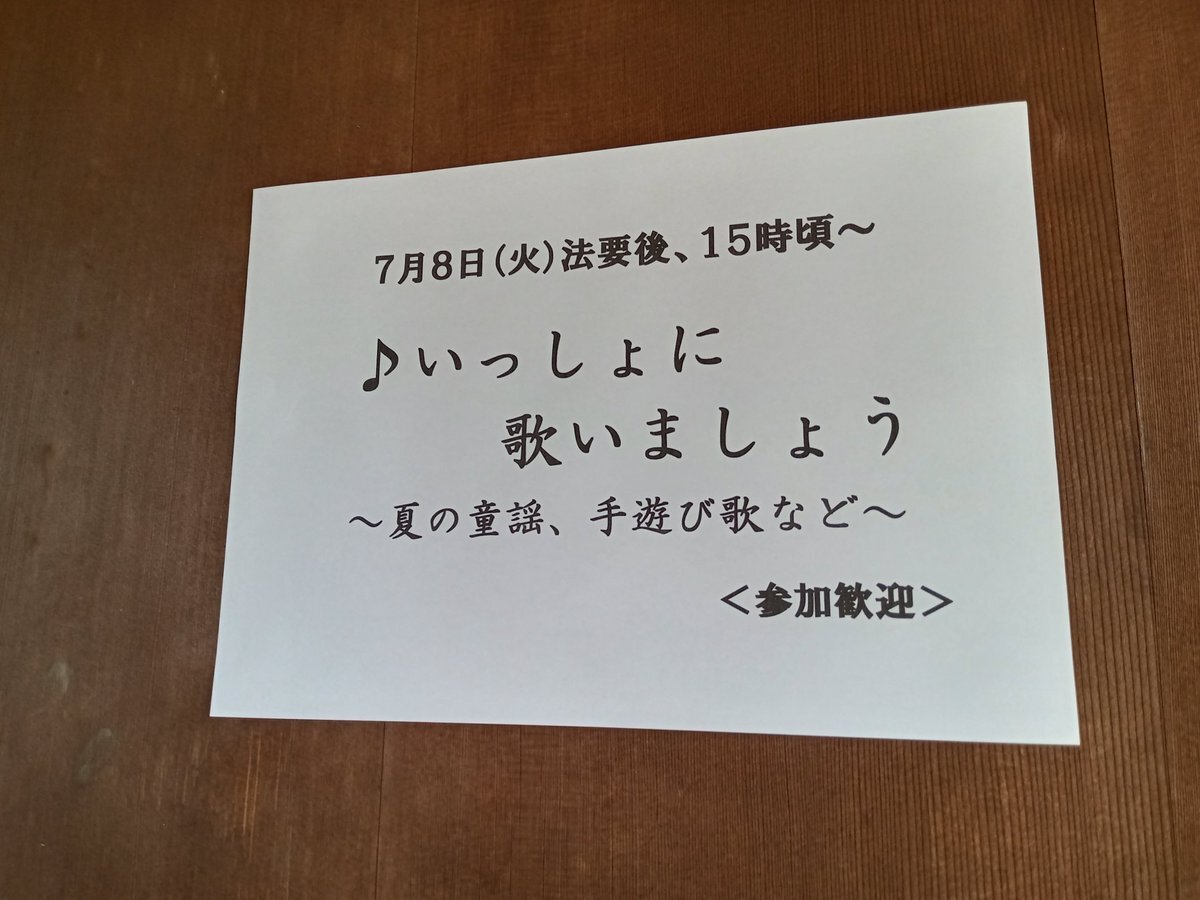 7月8日(火)法要後、15時頃～
♪いっしょに
歌いましょう
～夏の童謡、手遊び歌など～
＜参加歓迎＞